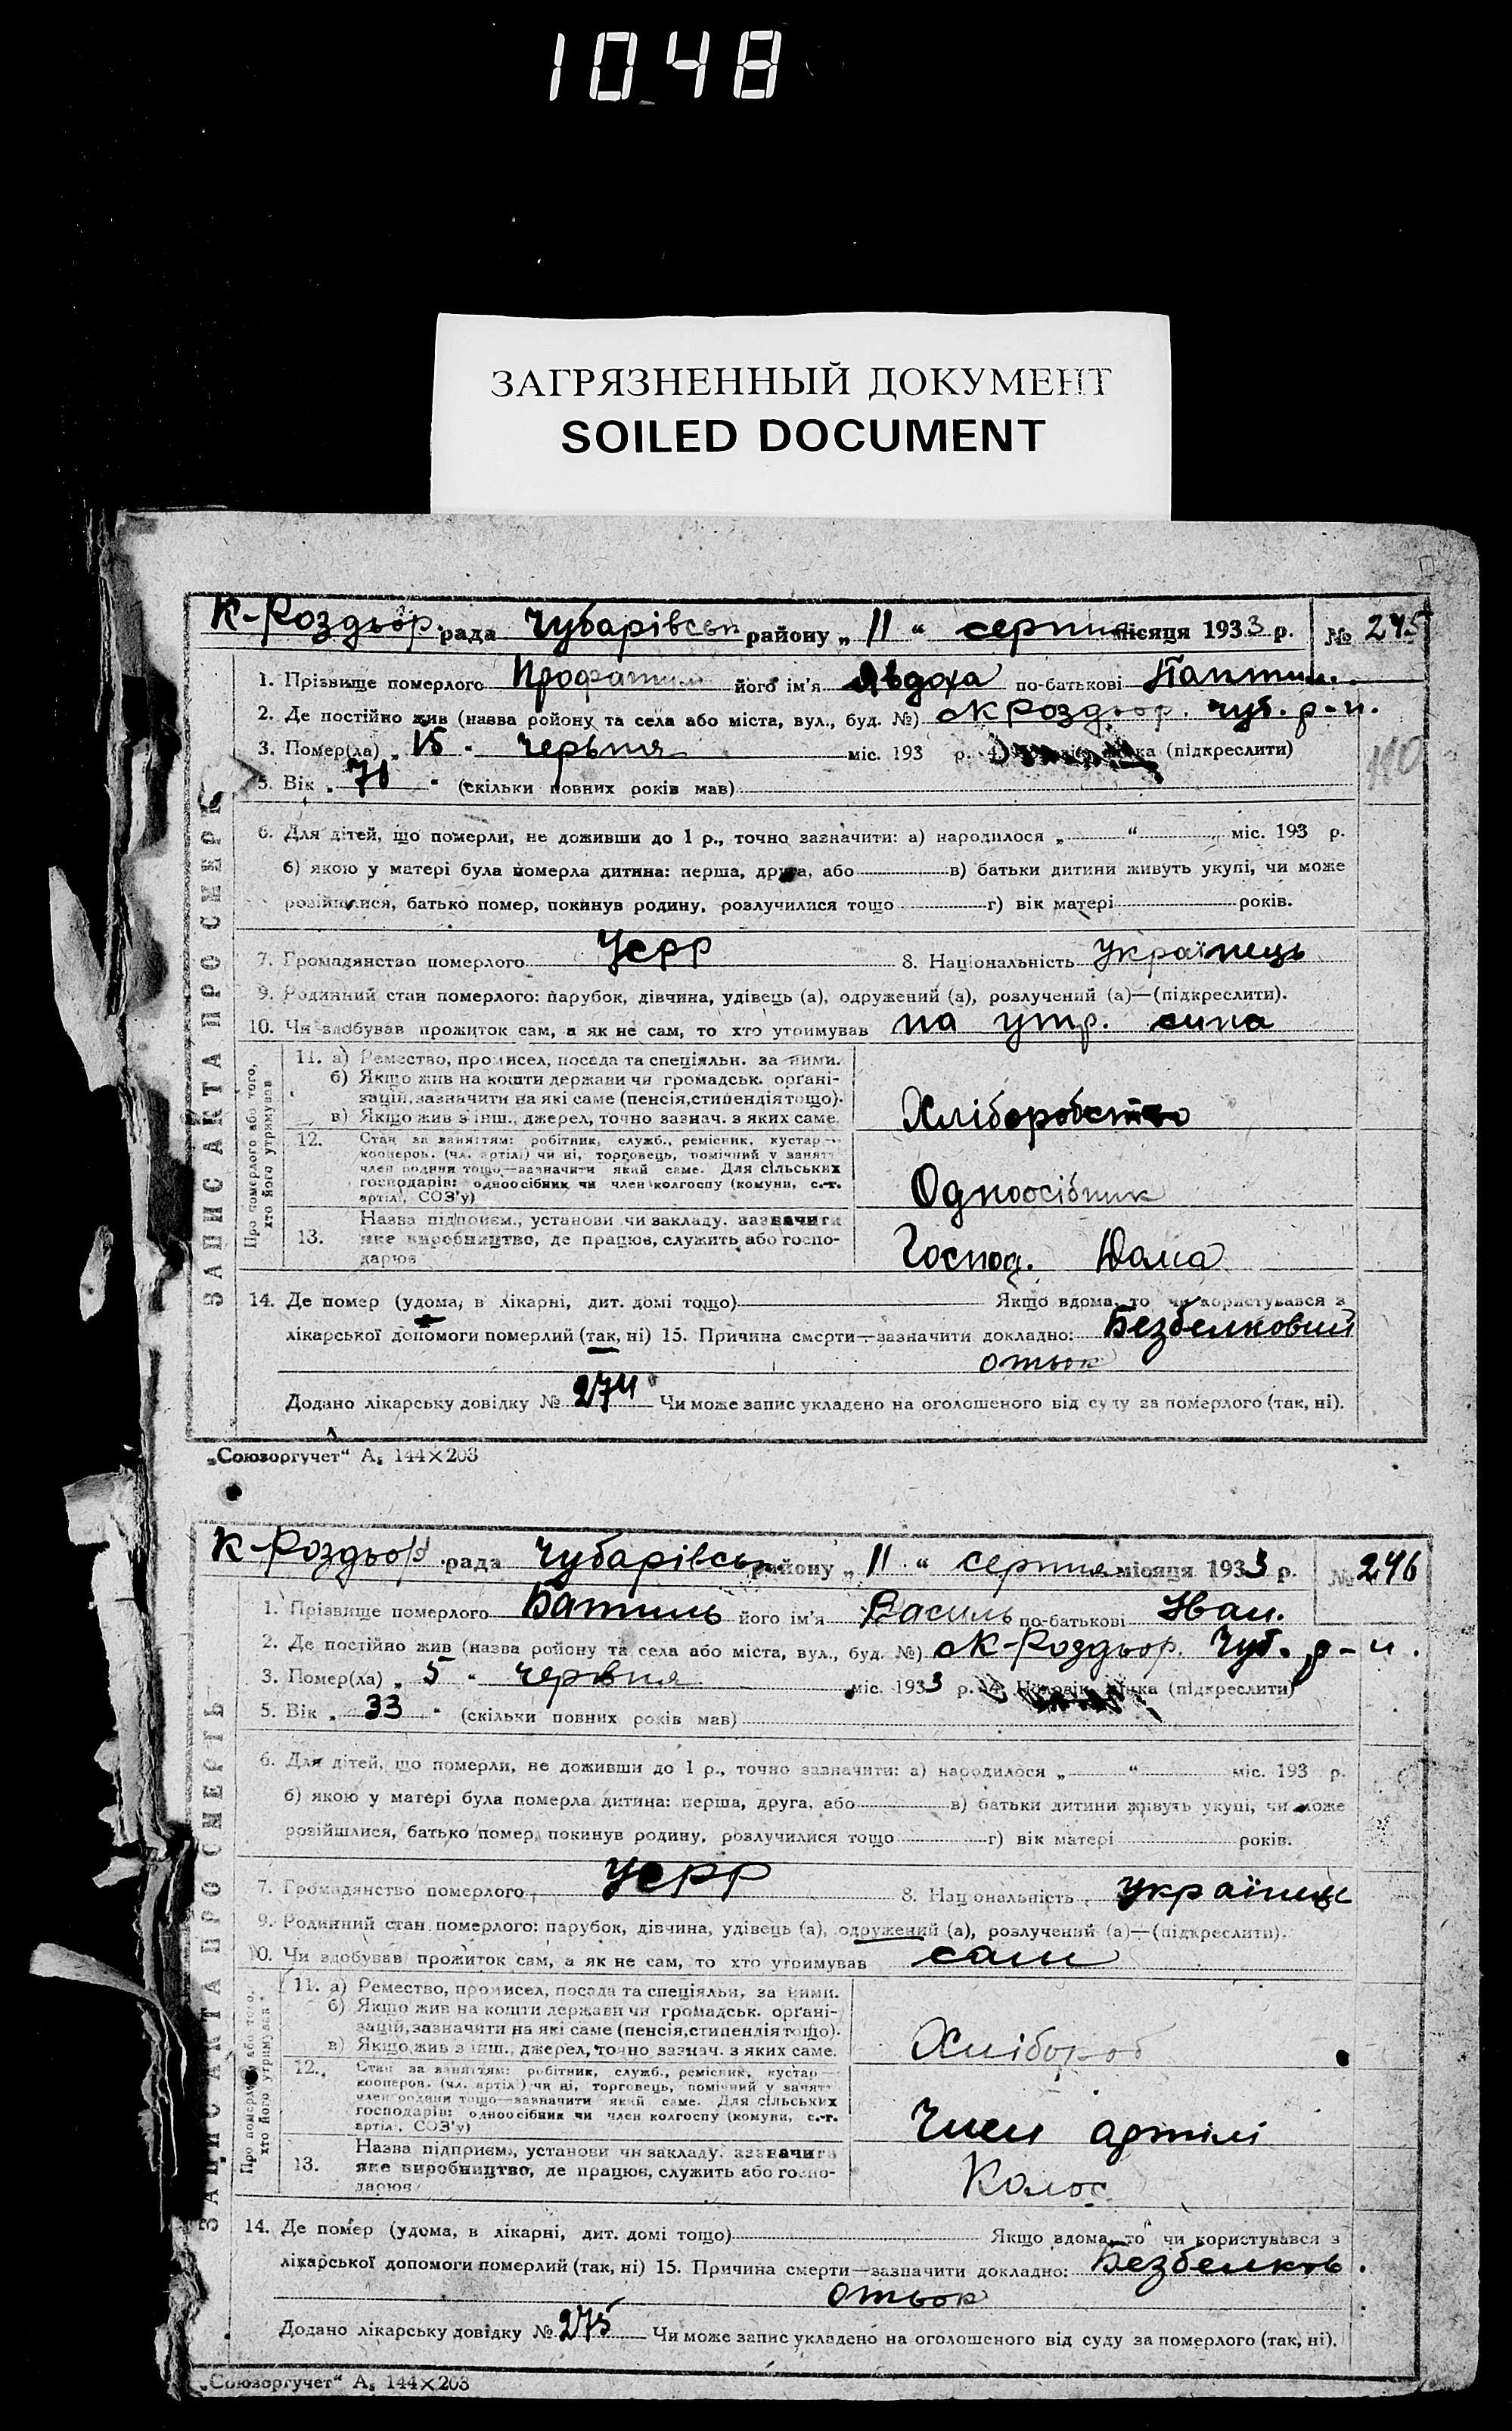 1048
ЗАГРЯЗНЕННЫЙ ДОКУМЕНТ
SOILED DOCUMENT
К-Роздьор. рада Чубарівськ району „ 11 “ серпня місяця 1933 р. № 245
ЗАПИС АКТА ПРО СМЕРТЬ
1. Прізвище померлого його ім'я Явдоха по-батькові
2. Де постійно жив (назва району та села або міста, вул., буд. №) К Роздьор. Чуб. р-н.
3. Помер(ла) „ 15 " червня міс. 193 р. 4. (підкреслити)
5. Вік „ 71 " (скільки повних років мав)
6. Для дітей, що померли, не доживши до 1 р., точно зазначити: а) народилося „ “ міс. 193 р.
б) якою у матері була померла дитина: перша, друга, або в) батьки дитини живуть укупі, чи може
розійшлися, батько помер, покинув родину, розлучилися тощо г) вік матері років.
7. Громадянство померлого УСРР 8. Національність Українець
9. Родинний стан померлого: парубок, дівчина, удівець (а), одружений (а), розлучений (а)—(підкреслити).
10. Чи здобував прожиток сам, а як не сам, то хто утримував на утр. сина
Про померлого або того, хто його утримував
11. а) Ремество, промисел, посада та спеціяльн. за ними.
б) Якщо жив на кошти держави чи громадськ. органі-
зацій, зазначити на які саме (пенсія, стипендія тощо).
в) Якщо жив з інш. джерел, точно зазнач. з яких саме.
Хліборобство
12. Стан за заняттям: робітник, служб., ремісник, кустар—
кооперов. (чл. артілі) чи ні, торговець, помічний у занятт
член родини тощо—зазначити який саме. Для сільських
господарів: одноосібник чи член колгоспу (комуни, с.-г.
артілі, СОЗ'у)
Одноосібник
13. Назва підприєм., установи чи закладу. зазначити
яке виробництво, де працює, служить або госпо-
дарює
Господ. Дома
14. Де помер (удома, в лікарні, дит. домі тощо) Якщо вдома, то чи користувався з
лікарської допомоги померлий (так, ні) 15. Причина смерти—зазначити докладно: Безбелковий
отьок
Додано лікарську довідку № 274 Чи може запис укладено на оголошеного від суду за померлого (так, ні).
„Союзоргучет“ А₅ 144×203
К-Роздьор. рада Чубарівськ району „ 11 “ серпня місяця 1933 р. № 246
ЗАПИС АКТА ПРО СМЕРТЬ
1. Прізвище померлого Батиль його ім'я Василь по-батькові Іван.
2. Де постійно жив (назва району та села або міста, вул., буд. №) К-Роздьор. Чуб. р-н.
3. Помер(ла) „ 5 " червня міс. 1933 р. 4. Чоловік, жінка (підкреслити)
5. Вік „ 33 " (скільки повних років мав)
6. Для дітей, що померли, не доживши до 1 р., точно зазначити: а) народилося „ “ міс. 193 р.
б) якою у матері була померла дитина: перша, друга, або в) батьки дитини живуть укупі, чи може
розійшлися, батько помер, покинув родину, розлучилися тощо г) вік матері років.
7. Громадянство померлого УСРР 8. Національність українець
9. Родинний стан померлого: парубок, дівчина, удівець (а), одружений (а), розлучений (а)—(підкреслити).
10. Чи здобував прожиток сам, а як не сам, то хто утримував сам
Про померлого або того, хто його утримував
11. а) Ремество, промисел, посада та спеціяльн. за ними.
б) Якщо жив на кошти держави чи громадськ. органі-
зацій, зазначити на які саме (пенсія, стипендія тощо).
в) Якщо жив з інш. джерел, точно зазнач. з яких саме.
Хлібороб
12. Стан за заняттям: робітник, служб., ремісник, кустар—
кооперов. (чл. артілі) чи ні, торговець, помічний у занятт
член родини тощо—зазначити який саме. Для сільських
господарів: одноосібник чи член колгоспу (комуни, с.-г.
артілі, СОЗ'у)
Член артілі
13. Назва підприєм., установи чи закладу. зазначити
яке виробництво, де працює, служить або госпо-
дарює
Колос
14. Де помер (удома, в лікарні, дит. домі тощо) Якщо вдома, то чи користувався з
лікарської допомоги померлий (так, ні) 15. Причина смерти—зазначити докладно: Безбелков.
отьок
Додано лікарську довідку № 275 Чи може запис укладено на оголошеного від суду за померлого (так, ні).
„Союзоргучет“ А₅ 144×203